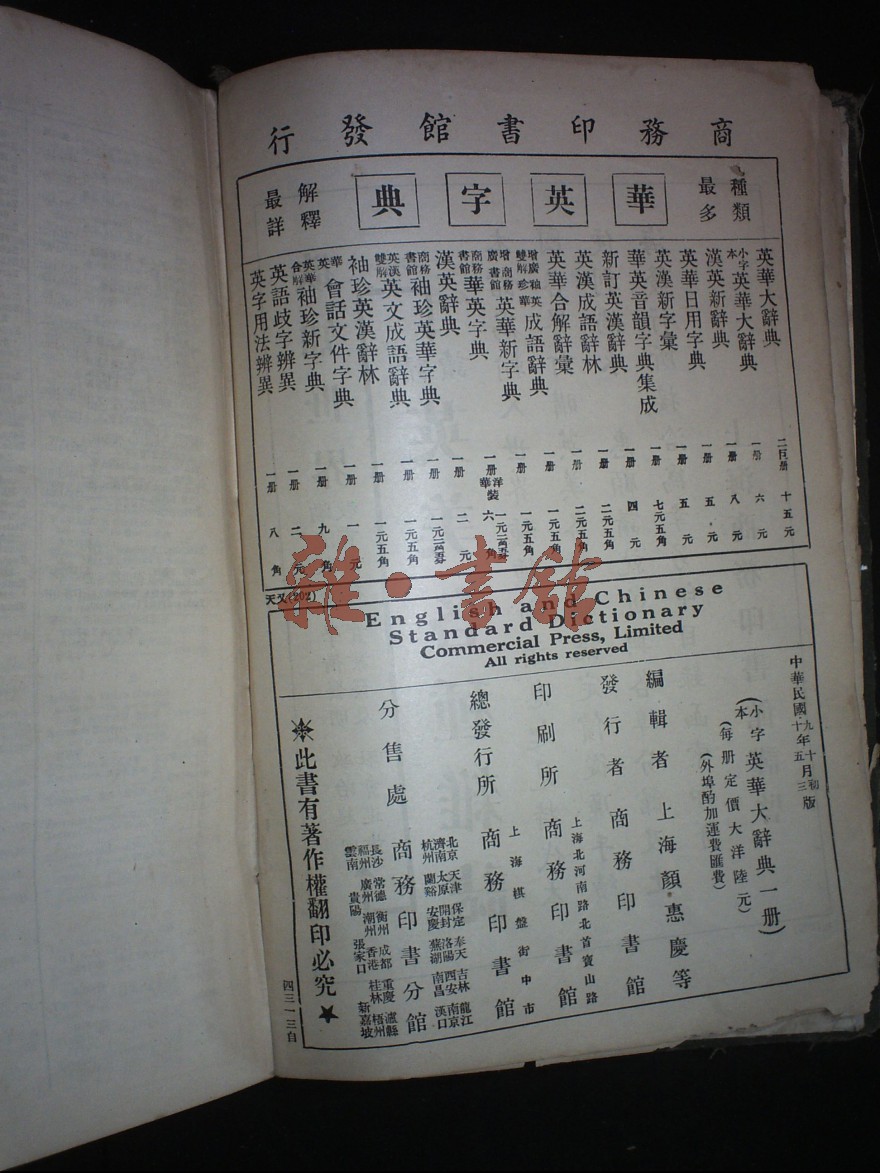 商務印書館發行
種類最多
華英字典
解釋最詳
英華大辭典 二巨册 十五元
小字本 英華大辭典 一册 六元
漢英新辭典 一册 八元
英華日用字典 一册 五元
英漢新字彙 一册 五元
華英音韻字典集成 一册 七元五角
新訂英漢辭典 一册 四元
英漢成語辭林 一册 二元五角
英華合解辭彙 一册 二元五角
增廣商務書館 英華新字典
雙解 成語辭典 一册 一元五角
商務書館 華英字典
漢英辭典
商務書館 袖珍英華字典
英漢雙解 英文成語辭典
袖珍英漢辭林
英華 會話文件字典
英華合解 袖珍新字典
英語歧字辨異 一册 二元
英字用法辨異 一册 八角
天又(202)
English and Chinese
Standard Dictionary
Commercial Press, Limited
All rights reserved
中華民國九年十月初版
十五 三
(小字本 英華大辭典一册)
(每册定價大洋陸元)
(外埠酌加運費匯費)
編輯者 上海顏惠慶等
發行者 商務印書館
印刷所 上海北河南路北首寶山路 商務印書館
總發行所 上海棋盤街中市 商務印書館
分售處 商務印書分館
北京 天津 保定 奉天 吉林 龍江
濟南 太原 開封 洛陽 西安 南京
杭州 蘭谿 安慶 蕪湖 南昌 漢口
長沙 常德 衡州 成都 重慶 瀘縣
福州 廣州 潮州 香港 桂林 梧州
雲南 貴陽 張家口 新嘉坡
此書有著作權翻印必究
四三一三自
雜·書館